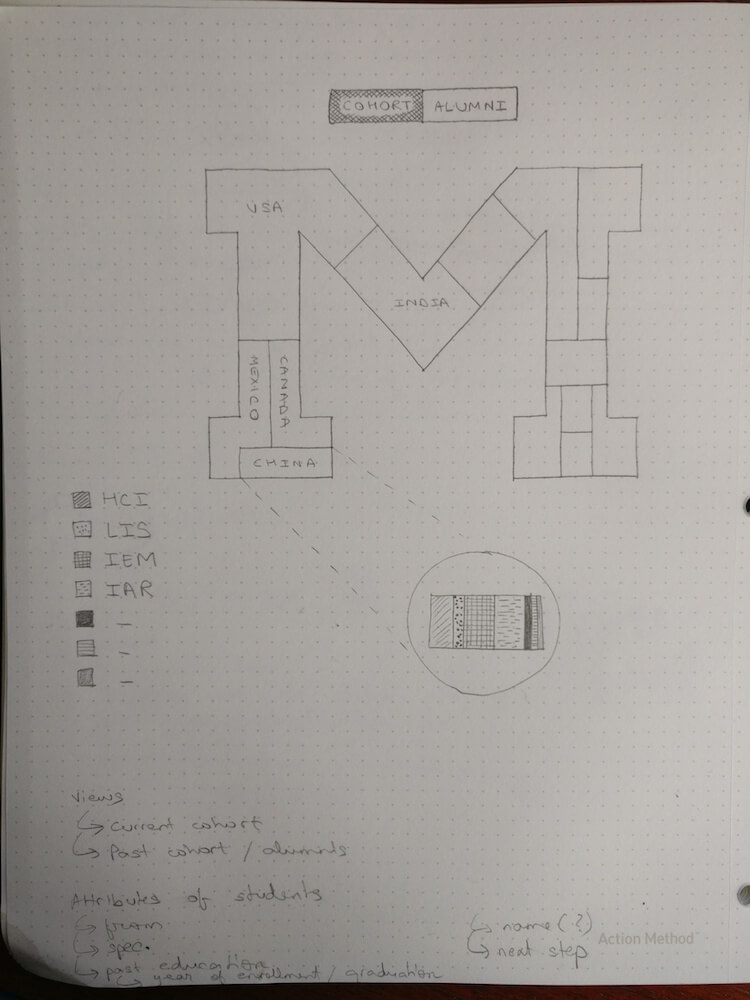 COHORT ALUMNI
USA
INDIA
MEXICO
CANADA
CHINA
HCI
LIS
IEM
IAR
-
-
-
Views
Current cohort
Past cohort / alumnis
Attributes of students
from
spec.
past education
year of enrollment / graduation
name (?)
next step
Action Method